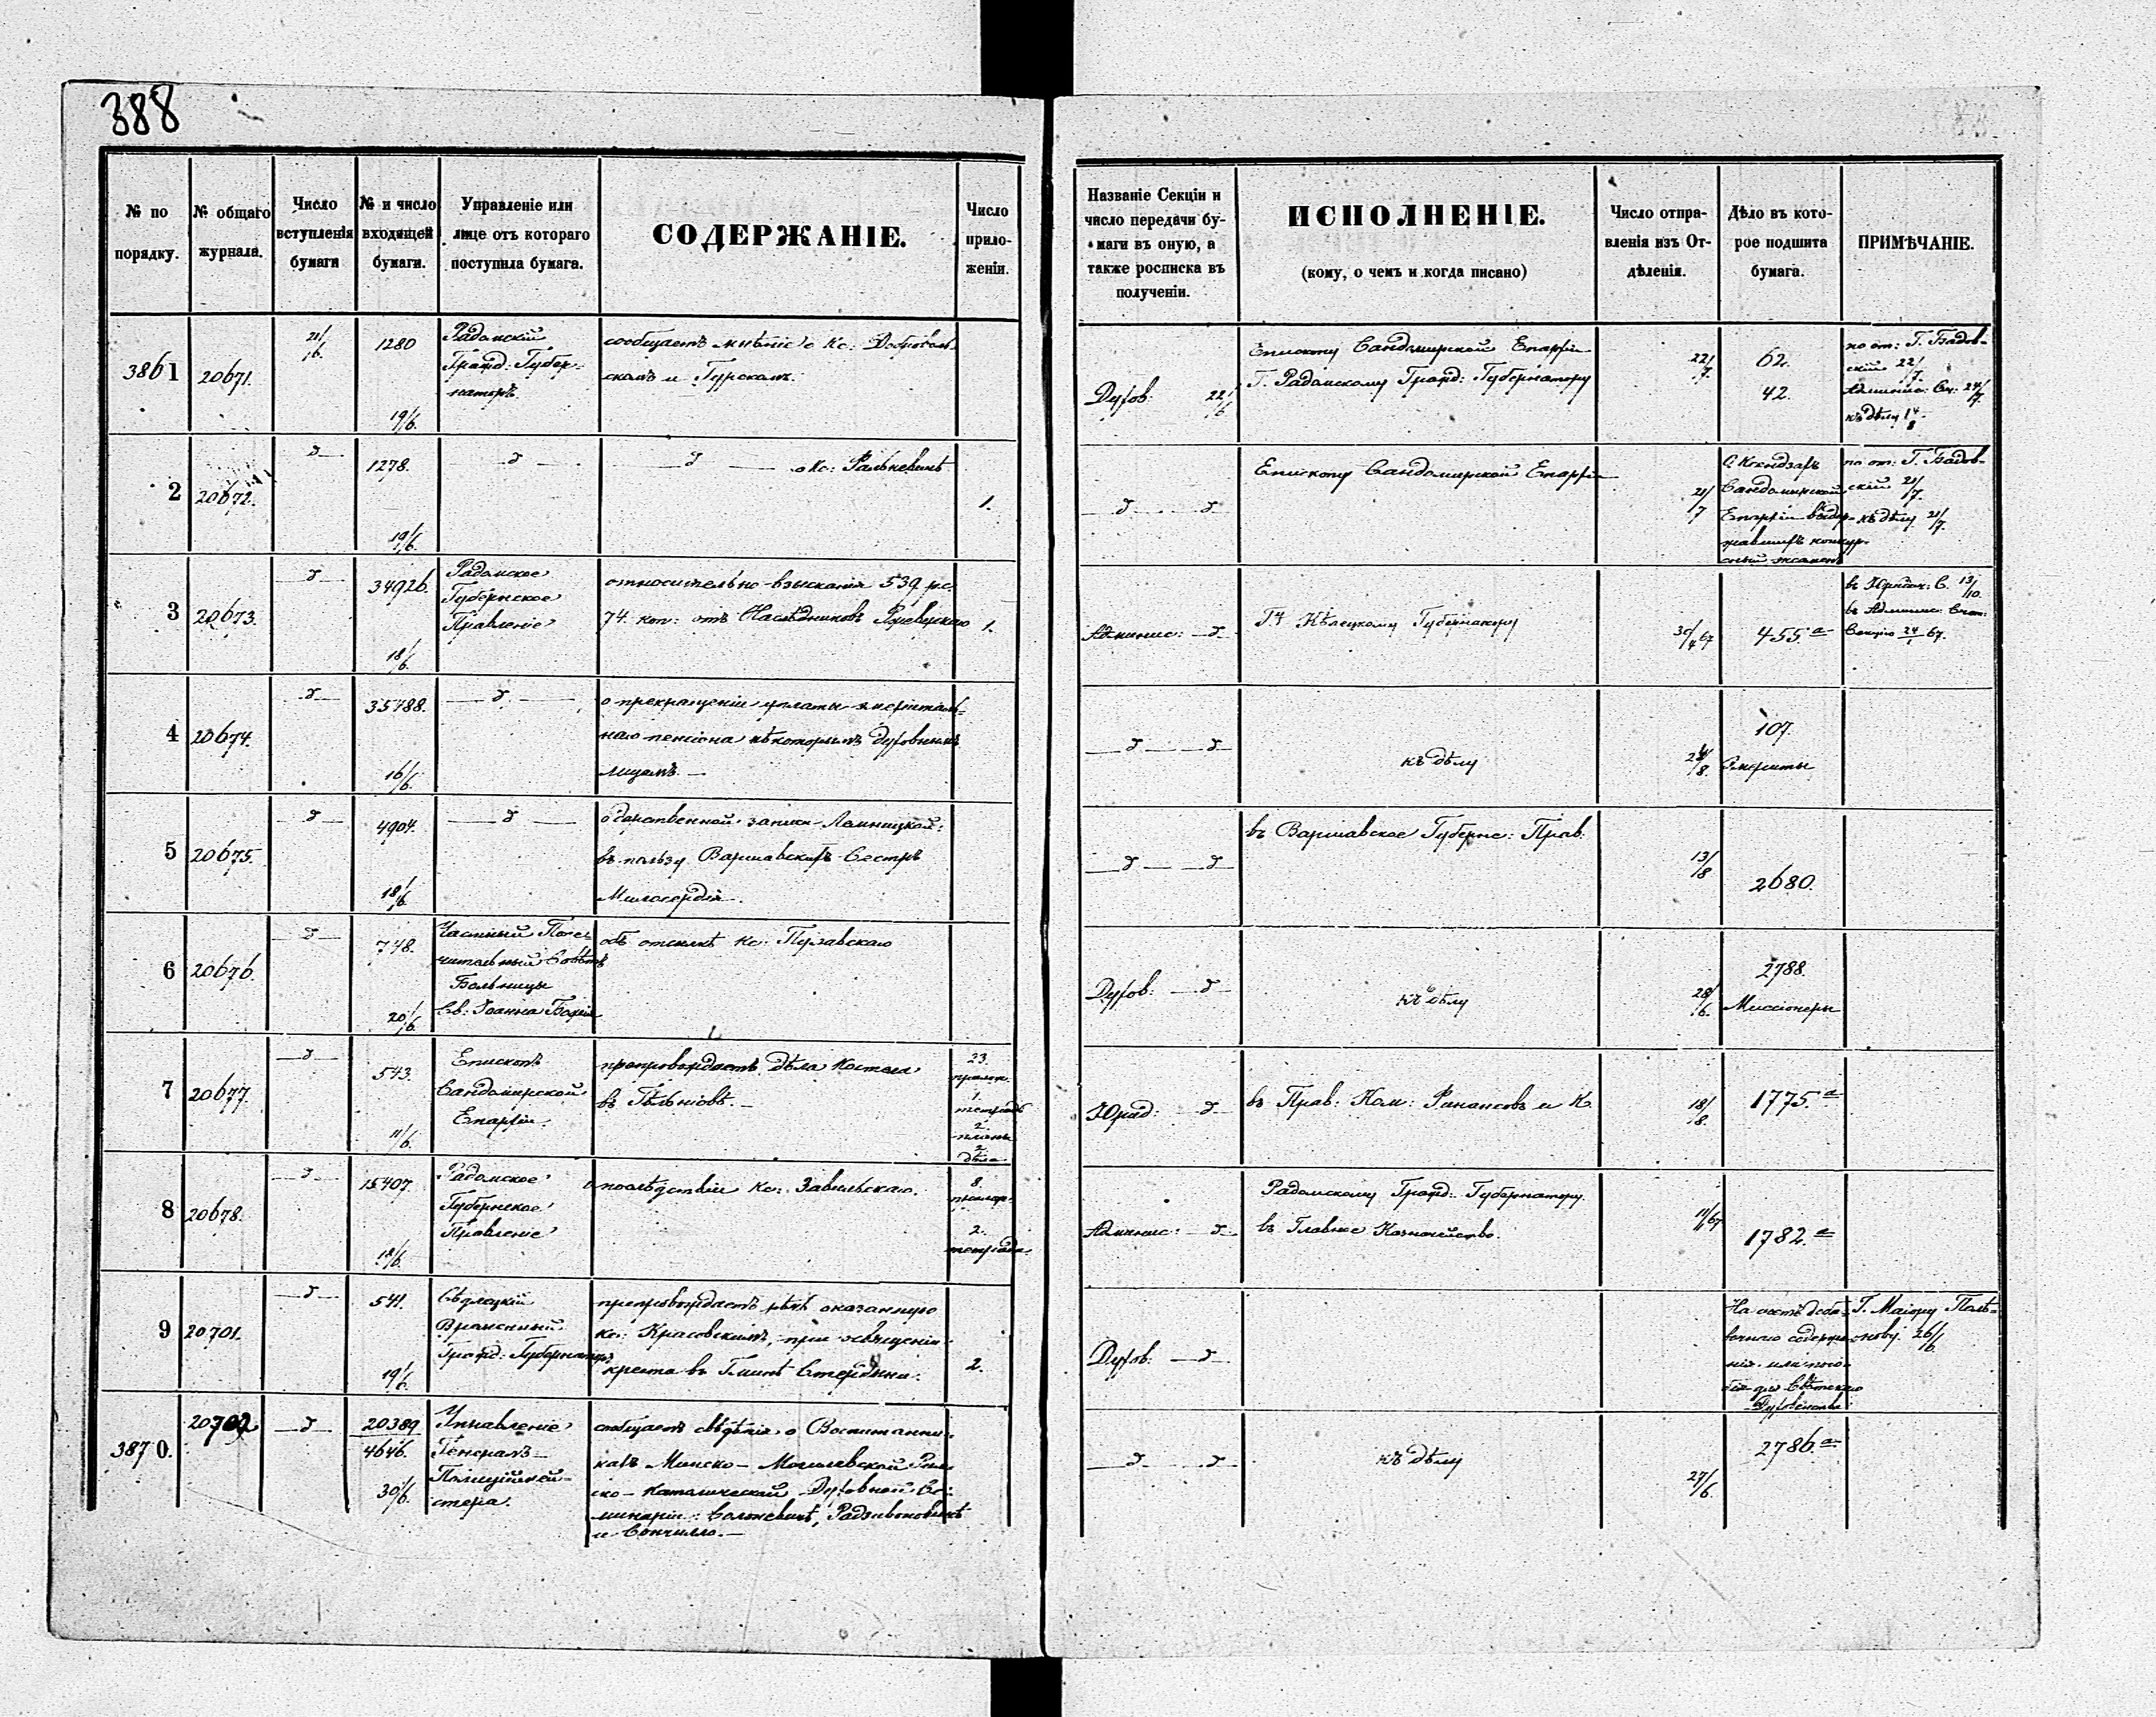 388
№ по порядку.
№ общаго журнала.
Число вступленія бумаги
№ и число входящей бумаги.
Управленіе или лице отъ котораго поступила бумага.
СОДЕРЖАНІЕ.
Число прило-
женіи.
Названіе Секціи и
число передачи бу-
маги въ оную, а
также росписка въ
полученіи.
ИСПОЛНЕНІЕ.
(кому, о чемъ и когда писано)
Число отпра-
вленія изъ От-
дѣленія.
Дѣло въ кото-
рое подшита
бумага.
ПРИМѢЧАНІЕ.
3861
20671.
21/6.
1280
19/6.
Радомскій
Гражд: Губер-
наторъ
сообщаетъ мнѣніе о Кс: Доброволь-
скомъ и Гурскомъ.
Духов: 22/6
Епископу Сандомирской Епархіи
Г. Радомскому Гражд: Губернатору
22/7.
62.
42.
по от: Г. Бадов-
скій 22/7.
къ дѣлу
2
20672.
1278.
19/6.
о Кс:
1.
Епископу Сандомирской Епархіи
21/7
О Ксендзахъ
Сандомирской
Епархіи выдер-
жавшихъ конкур-
сный экзаменъ
по от: Г. Бадов-
скій 21/7.
къ дѣлу 21/7.
3
20673.
34926.
18/6.
Радомское
Губернское
Правленіе
относительно взысканія 539 р.с.
74 коп: отъ Наслѣдниковъ Ржевускаго
1.
Админис:
Кѣлецкому Губернатору
455.а
въ Юридич: С. 13/10.
въ Админис:
Секцію 24/1 67.
4
20674.
35788.
16/6.
о прекращеніи уплаты эмериталь-
наго пенсіона нѣкоторымъ духовнымъ
лицамъ.—
къ дѣлу
107.
Эмериты
5
20675.
4904.
18/6.
о дарственной записи Ломницкой
въ пользу Варшавскихъ Сестръ
Милосердія.
въ Варшавское Губернс: Прав.
13/8
2680.
6
20676.
748.
20/6.
Частный Попе-
чительный Совѣтъ
Больницы
Св: Іоанна Божія
объ отсылкѣ Кс: Пулавскаго
Духов:
къ дѣлу
28/6.
2788.
Миссіонеры
7
20677.
543.
11/6.
Епископъ
Сандомирской
Епархіи.
препровождаетъ дѣла костела
въ
23.
1.
тетрадь
2.
планы
2.
дѣла
Юрид:
въ Прав: Ком: Финансовъ и К.
18/8.
1775.а
8
20678.
15407.
18/6.
Радомское
Губернское
Правленіе
о послѣдствіи Кс: Завильскаго.
8.
2.
тетради
Админис:
Радомскому Гражд: Губернатору.
въ Главное Казначейство.
1782.а
9
20701.
541.
19/6.
Сѣдлецкій
Временный
Гражд: Губернаторъ
препровождаетъ рѣчь сказанную
кс: Красовскимъ, при освященіи
креста въ Гминѣ Стердынь.
2.
Духов:
На счетъ доба-
вочнаго содержа-
нія или посо-
бія для Свѣтскаго
Духовенства
Г. Маіору
26/6
3870.
20702
20389
4646.
30/6.
Управленіе
Генералъ-
Полиціймей-
стера.
сообщаетъ свѣдѣнія о Воспитанни-
кахъ Минско-Могилевской Рим-
ско-Католической Духовной Се-
минаріи:
и
къ дѣлу
27/6.
2786.а